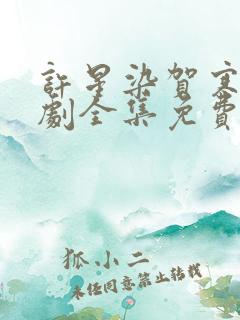 許星染賀
劇全集免費
狐小二
未经同意禁止转载